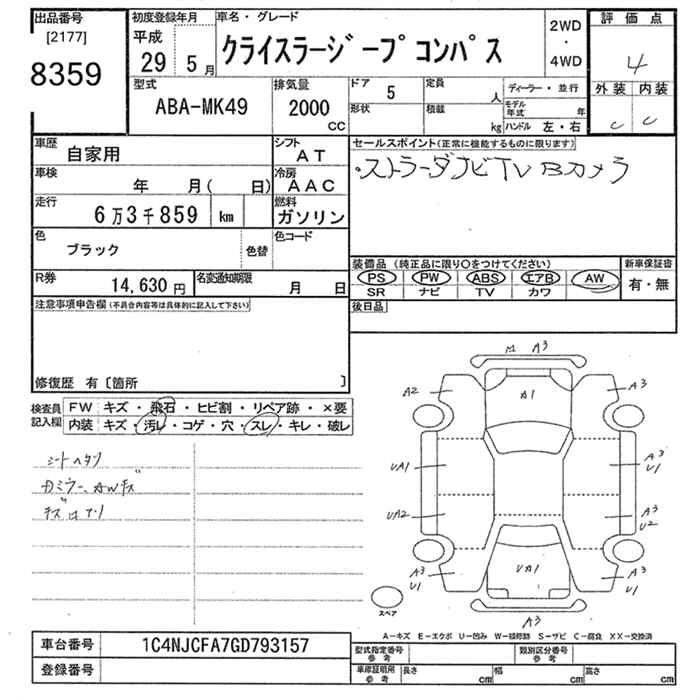 出品番号
[2177]
8359
初度登録年月
平成
29 5 月
車名・グレード
クライスラージープ コンパス
2WD
・
4WD
評価点
4
外装 内装
C C
型式
ABA-MK49
排気量
2000
CC
ドア 5
定員 人
形状
積載 kg
ディーラー・並行
モデル年式 年
ハンドル 左・右
車歴 自家用
シフト AT
車検 年 月( 日)
冷房 AAC
走行 6万3千859 km
燃料 ガソリン
色 ブラック 色替
色コード
R券 14,630 円
名変通知期限 月 日
セールスポイント(正常に機能するものに限ります)
・ストラーダナビTV Bカメラ
装備品 (純正品に限り○をつけてください)
PS PW ABS エアB AW
SR ナビ TV カワ
新車保証書
有・無
後日品
注意事項申告欄(不具合内容等は具体的に記入して下さい)
修復歴 有〔箇所 〕
検査員記入欄
FW キズ・飛石・ヒビ割・リペア跡・×要
内装 キズ・汚レ・コゲ・穴・スレ・キレ・破レ
シートヘタリ
カミラー、AWキズ
M A3
A2 A1 A3
UA1 A3 U1
UA2 A3 U2
A3 U1 UA1 A3 U1
A3
スペア
A－キズ E－エクボ U－凹み W－補修跡 S－サビ C－腐食 XX－交換済
車台番号 1C4NJCFA7GD793157
登録番号
型式指定番号 参考
類別区分番号 参考
車庫証明用 参考 長さ cm 幅 cm 高さ cm